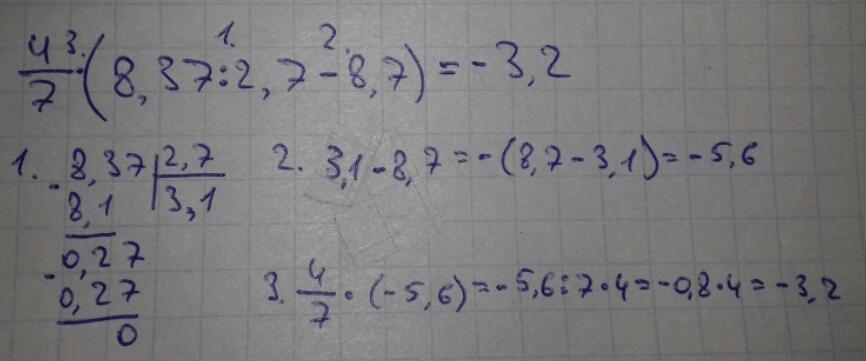 1. 2.
4/7 3. · (8,37:2,7-8,7) = -3,2
1. -8,37 | 2,7
8,1 | 3,1
-0,27
0,27
0
2. 3,1-8,7 = -(8,7-3,1) = -5,6
3. 4/7 · (-5,6) = -5,6:7·4 = -0,8·4 = -3,2